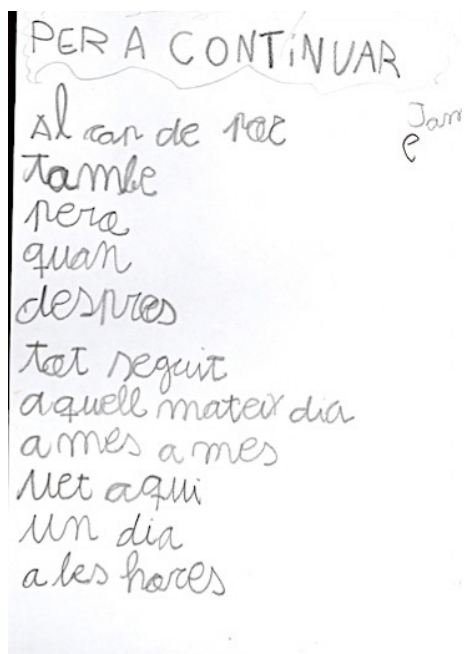 PER A CONTINUAR
Al cap de poc
Jam
e
tambe
pero
quan
despres
tot seguit
aquell mateix dia
a mes a mes
Vet aqui
un dia
a les hores